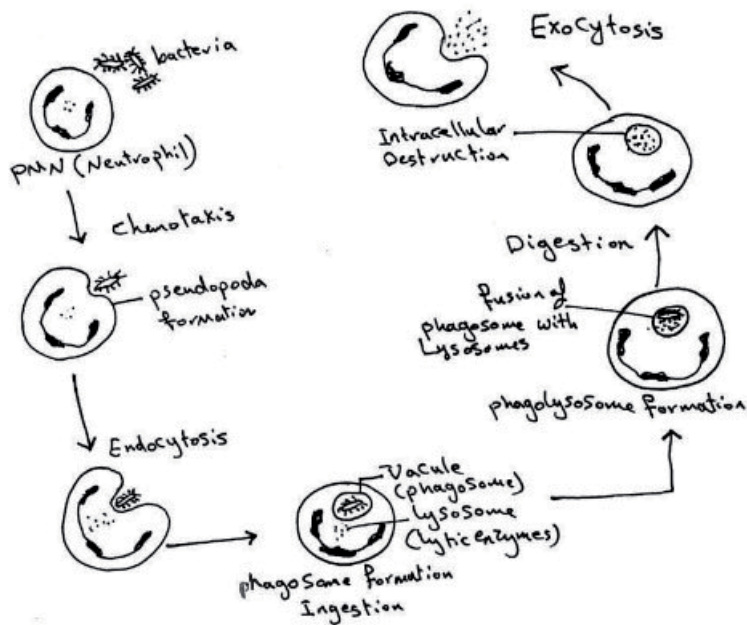 bacteria
PMN (Neutrophil)
Chemotaxis
pseudopoda
formation
Endocytosis
Vacule
(phagosome)
lysosome
(lytic enzymes)
phagosome formation
Ingestion
phagolysosome formation
fusion of
phagosome with
Lysosomes
Digestion
Intracellular
Destruction
Exocytosis